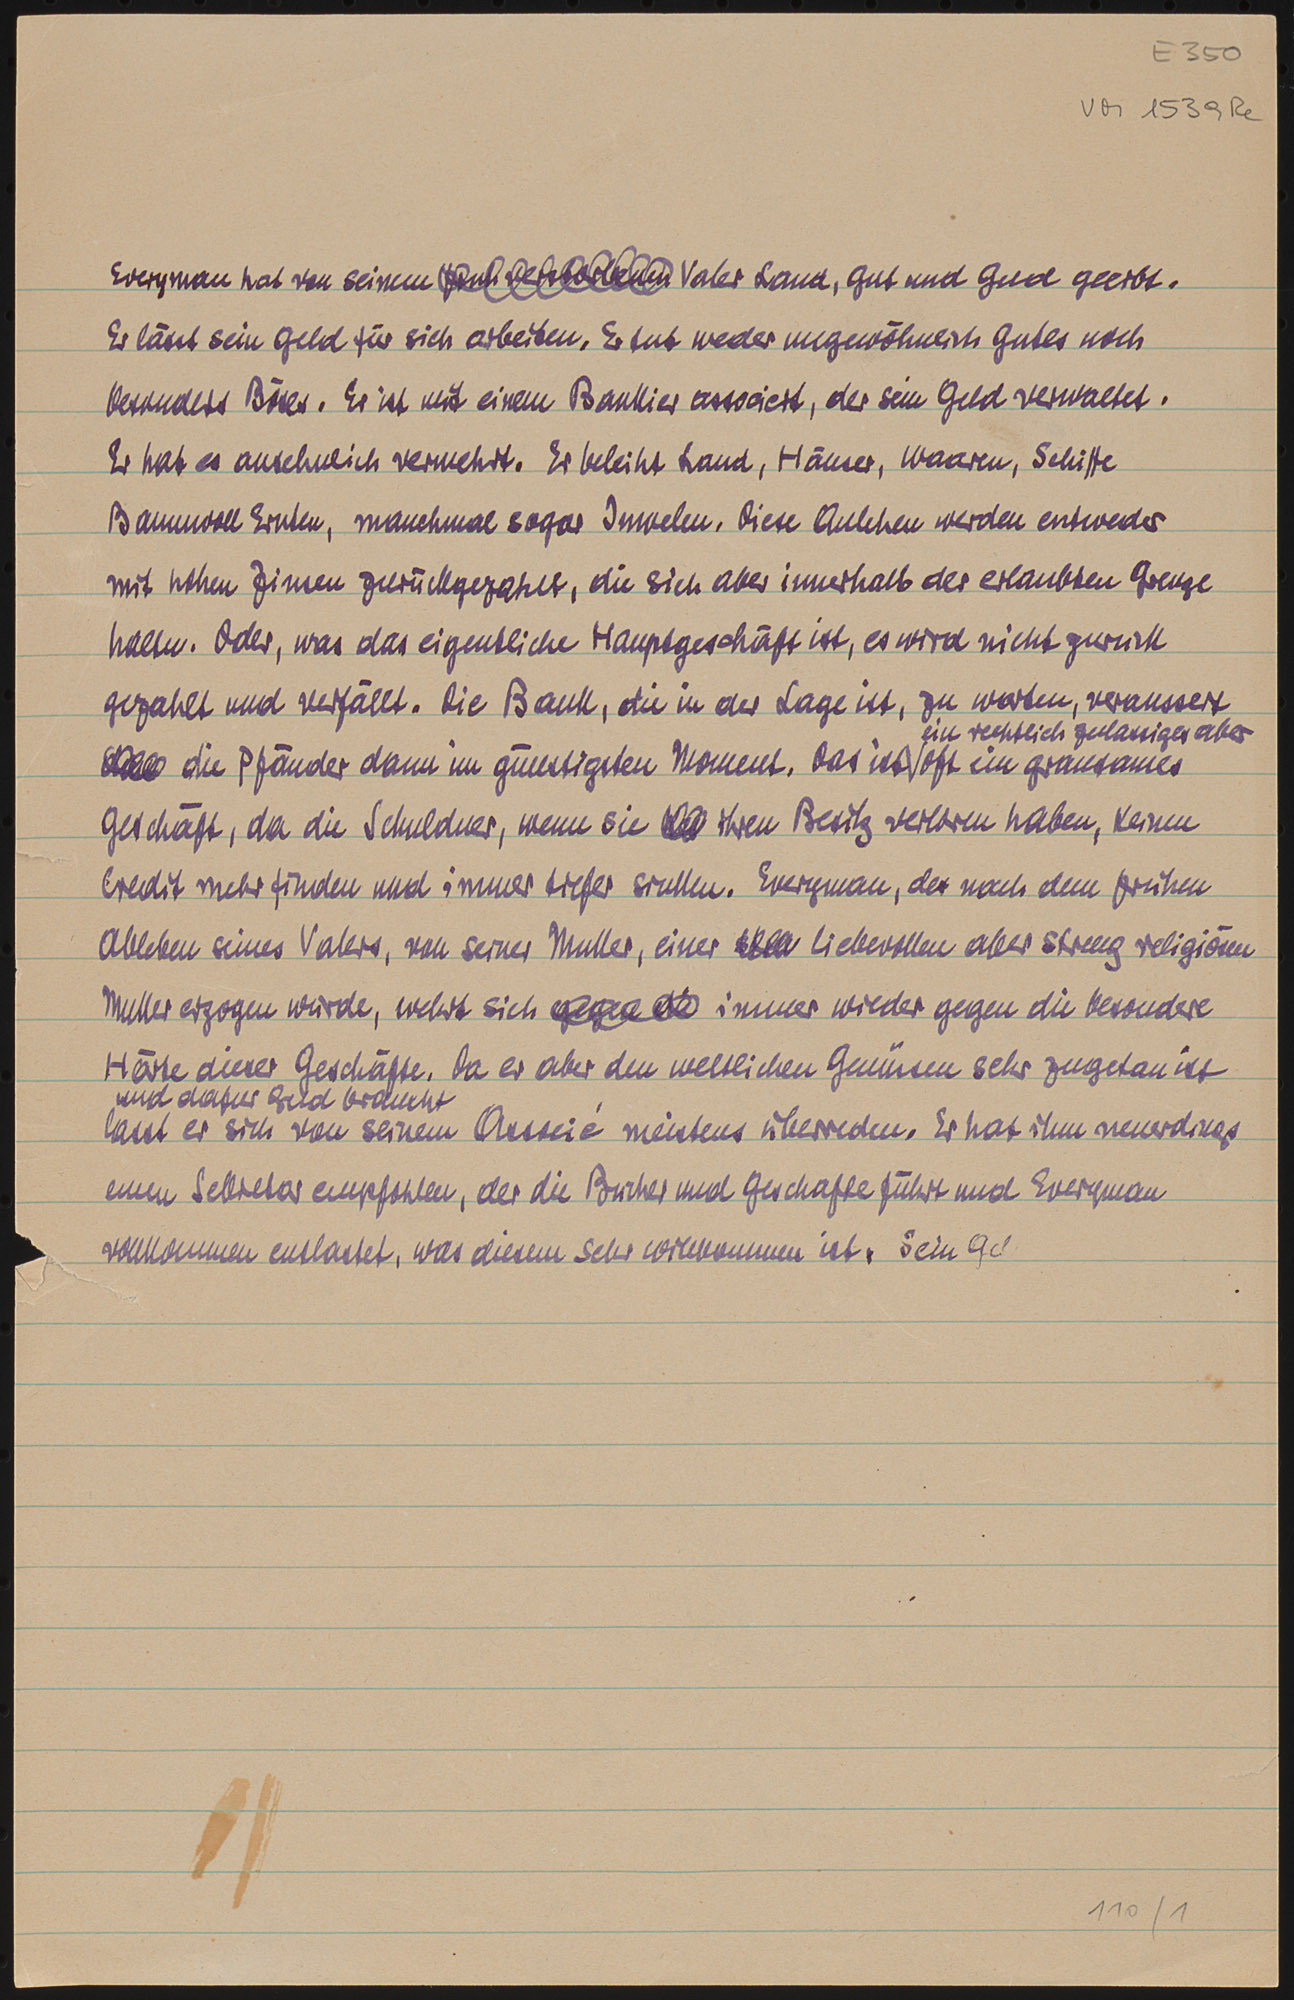 E 350
VM 1539 Re
Everyman hat von seinem früh verstorbenen Vater Land, Gut und Geld geerbt.
Er lässt sein Geld für sich arbeiten. Er tut weder ungewöhnlich Gutes noch
besonders Böses. Er ist mit einem Bankier associert, der sein Geld verwaltet.
Er hat es ansehnlich vermehrt. Er beleiht Land, Häuser, Waaren, Schiffe
Baumwoll Ernten, manchmal sogar Juwelen. Diese Anlehen werden entweder
mit hohen Zinsen zurückgezahlt, die sich aber innerhalb der erlaubten Grenze
halten. Oder, was das eigentliche Hauptgeschäft ist, es wird nicht zurück
gezahlt und verfällt. Die Bank, die in der Lage ist, zu warten, veraussert
ein rechtlich zulassiges aber
die Pfänder dann im günstigsten Moment. Das ist oft ein grausames
Geschäft, da die Schuldner, wenn sie ihren Besitz verloren haben, keinen
Credit mehr finden und immer tiefer sinken. Everyman, der nach dem frühen
Ableben seines Vaters, von seiner Mutter, einer liebevollen aber streng religiösen
Mutter erzogen wurde, wehrt sich gegen die immer wieder gegen die besondere
Härte dieser Geschäfte. Da er aber den weltlichen Genüssen sehr zugetan ist
und dafur Geld braucht
lasst er sich von seinem Associé meistens überreden. Er hat ihm neuerdings
einen Sekretar empfohlen, der die Bucher und Geschafte führt und Everyman
vollkommen entlastet, was diesem sehr willkommen ist. Sein Gel
110/1